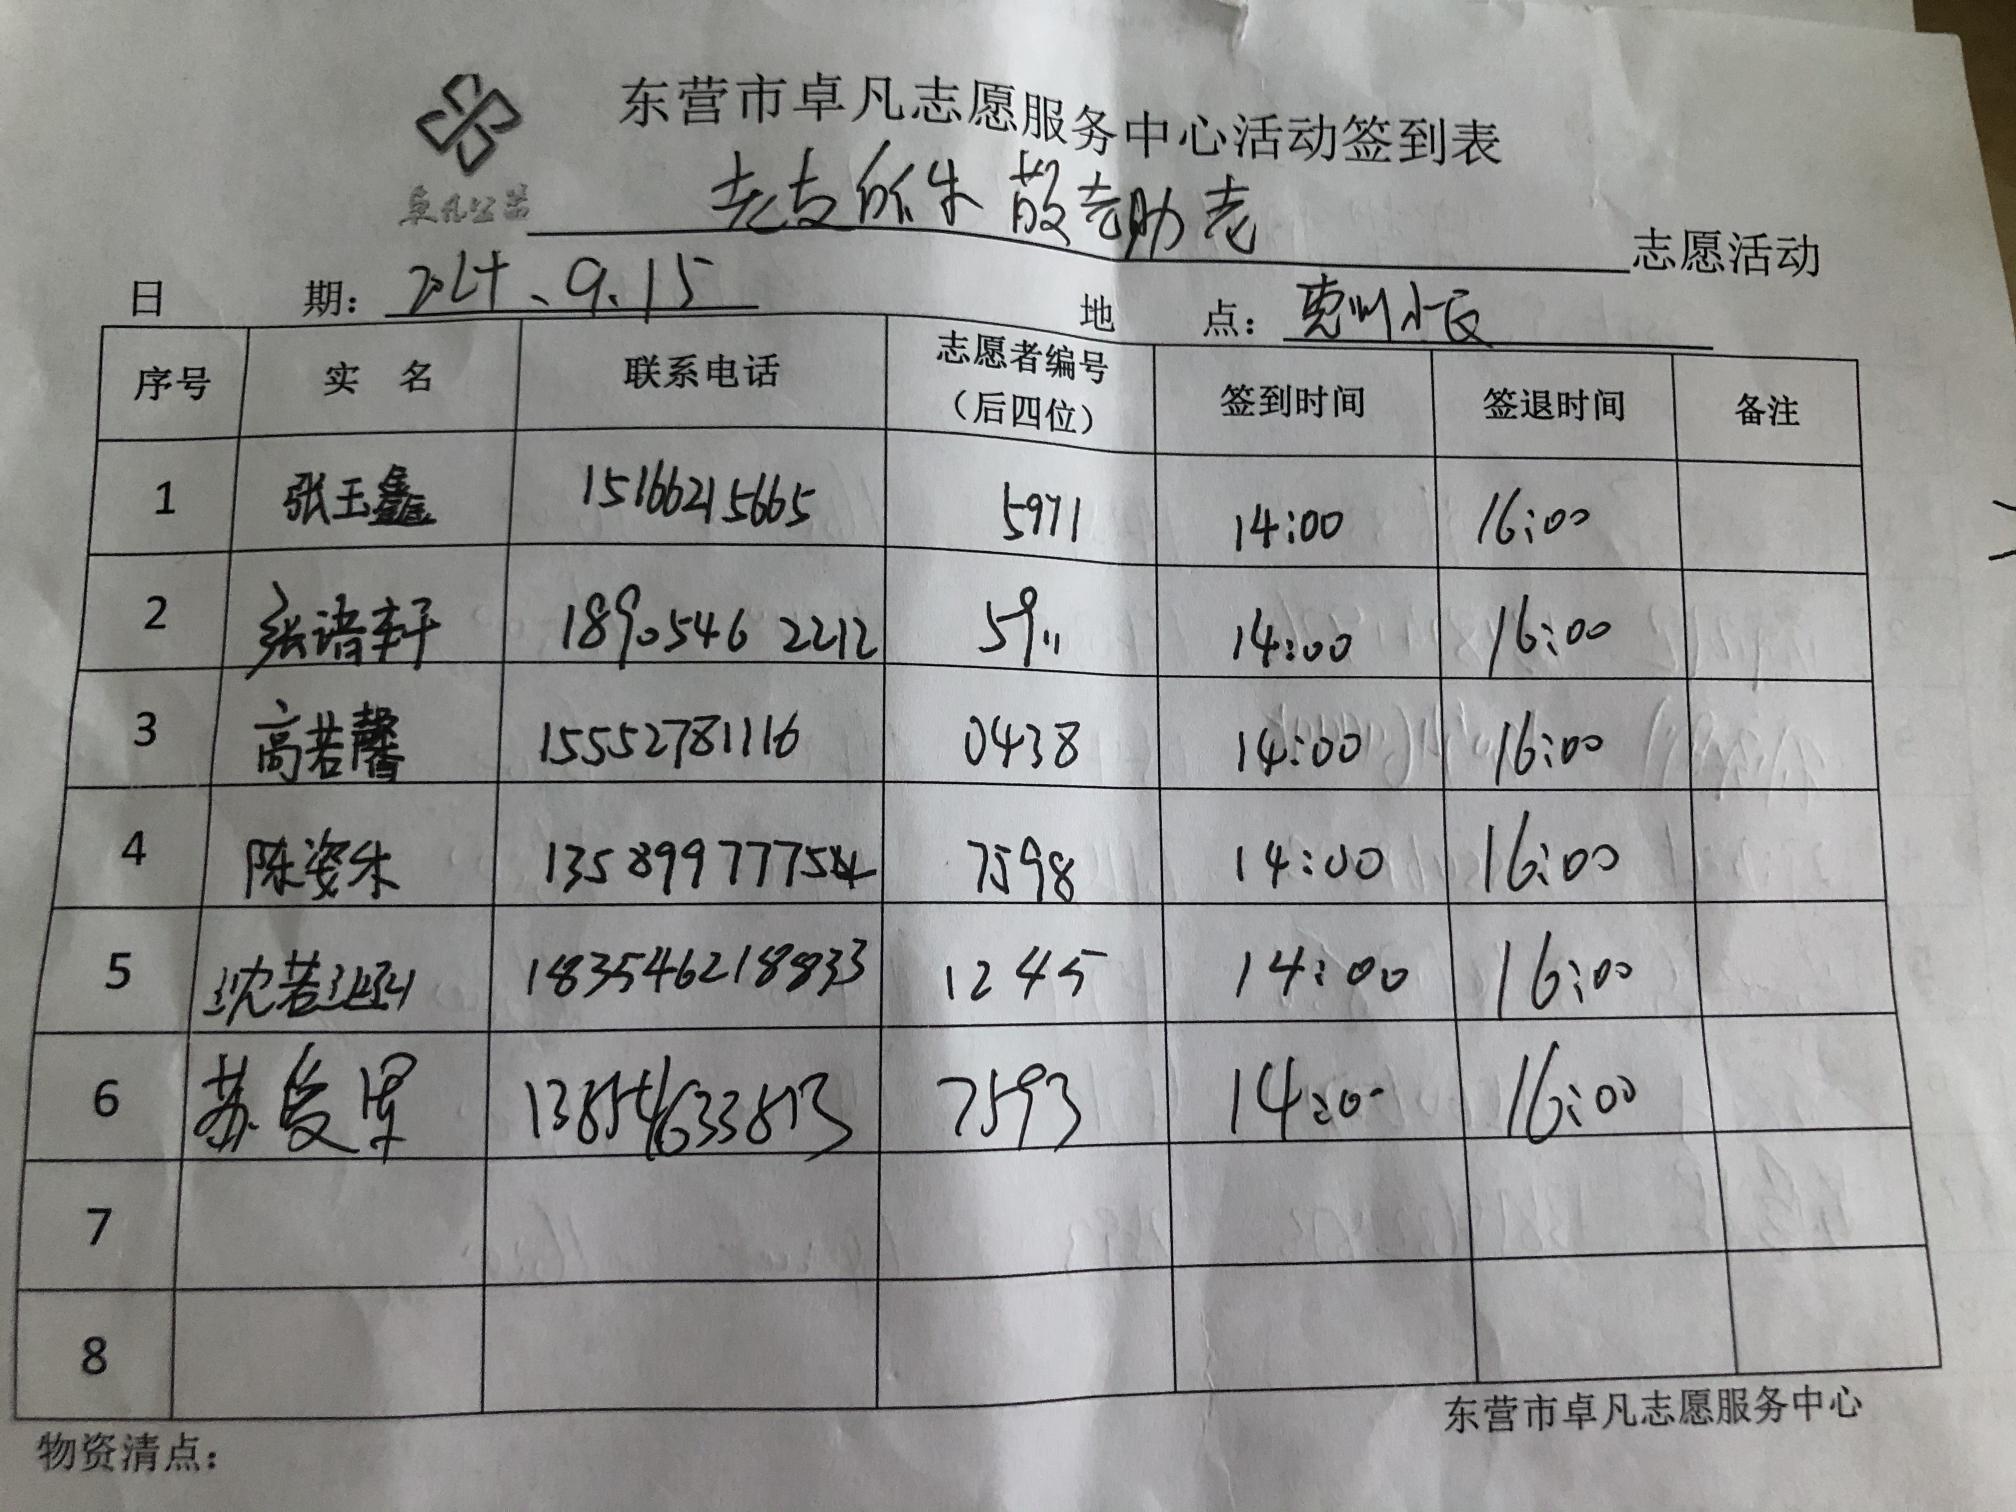 东营市卓凡志愿服务中心活动签到表
卓凡公益
敬老助老 志愿活动
日 期: 2024.9.15 地 点: 惠州小区
序号 实 名 联系电话 志愿者编号(后四位) 签到时间 签退时间 备注
1 张玉鑫 15166215665 5971 14:00 16:00
2 张诸轩 18905462212 5911 14:00 16:00
3 高若馨 15552781116 0438 14:00 16:00
4 陈姿 7598 14:00 16:00
5 沈若 1245 14:00 16:00
6 苏 7593 14:00 16:00
7
8
东营市卓凡志愿服务中心
物资清点: